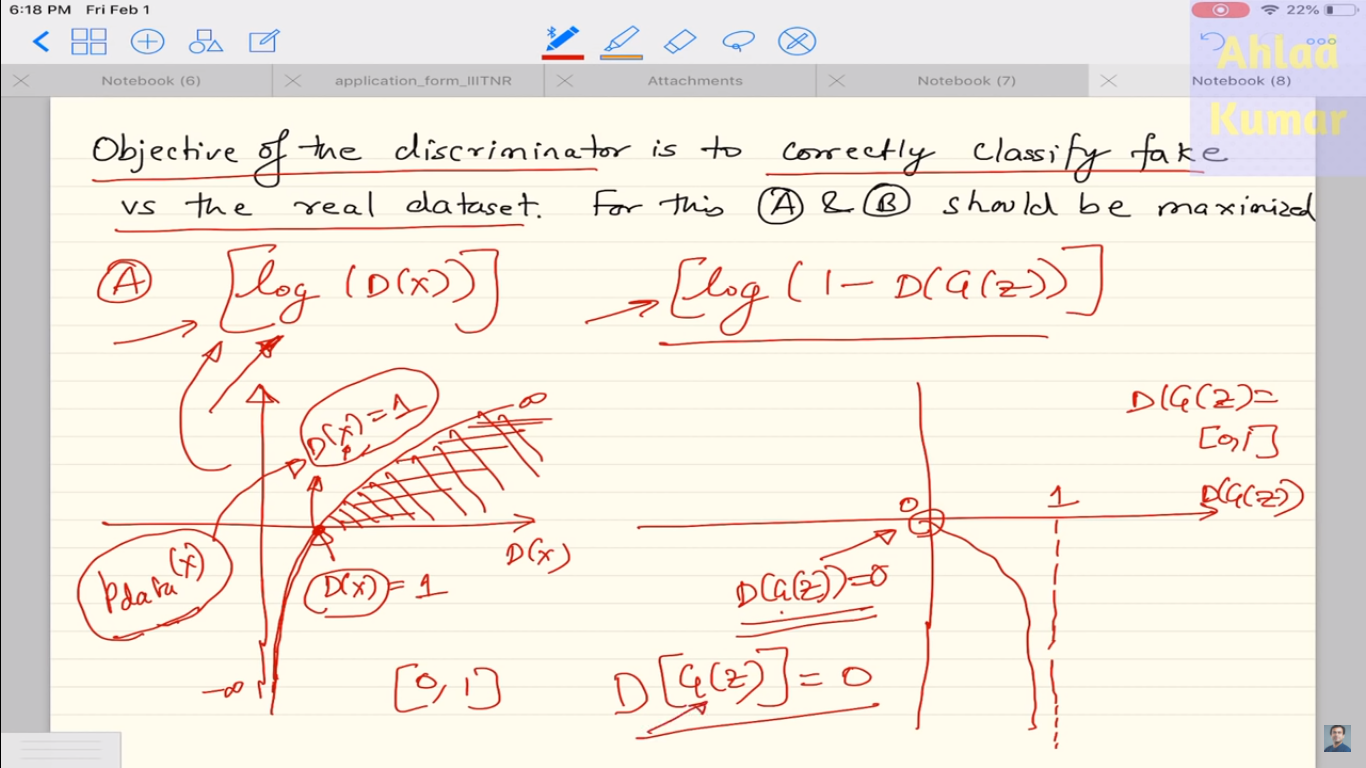 6:18 PM Fri Feb 1
22%
Ahlad
Kumar
Notebook (6)
application_form_IIITNR
Attachments
Notebook (7)
Notebook (8)
Objective of the discriminator is to correctly classify fake
vs the real dataset. For this (A) & (B) should be maximized
(A) [log (D(x))] [log (1 - D(G(z))]
D(x) = 1
∞
D(G(z)=
[0,1]
0
1
D(G(z))
D(x)
Pdata(x)
D(x) = 1
D(G(z))=0
-∞
[0, 1]
D[G(z)] = 0